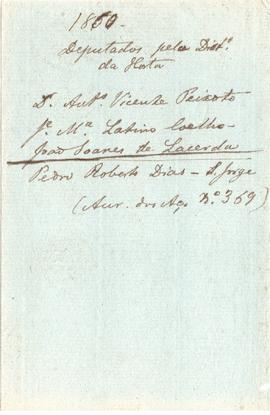 1860.
Deputados pelo Dist.º
da Horta
Dr. Antº Vicente Peixoto
Jº. Mª Latino Coelho
João Soares de Lacerda
Pedro Roberto Dias – S. Jorge
(Aur. dos Aç. Nº 369)